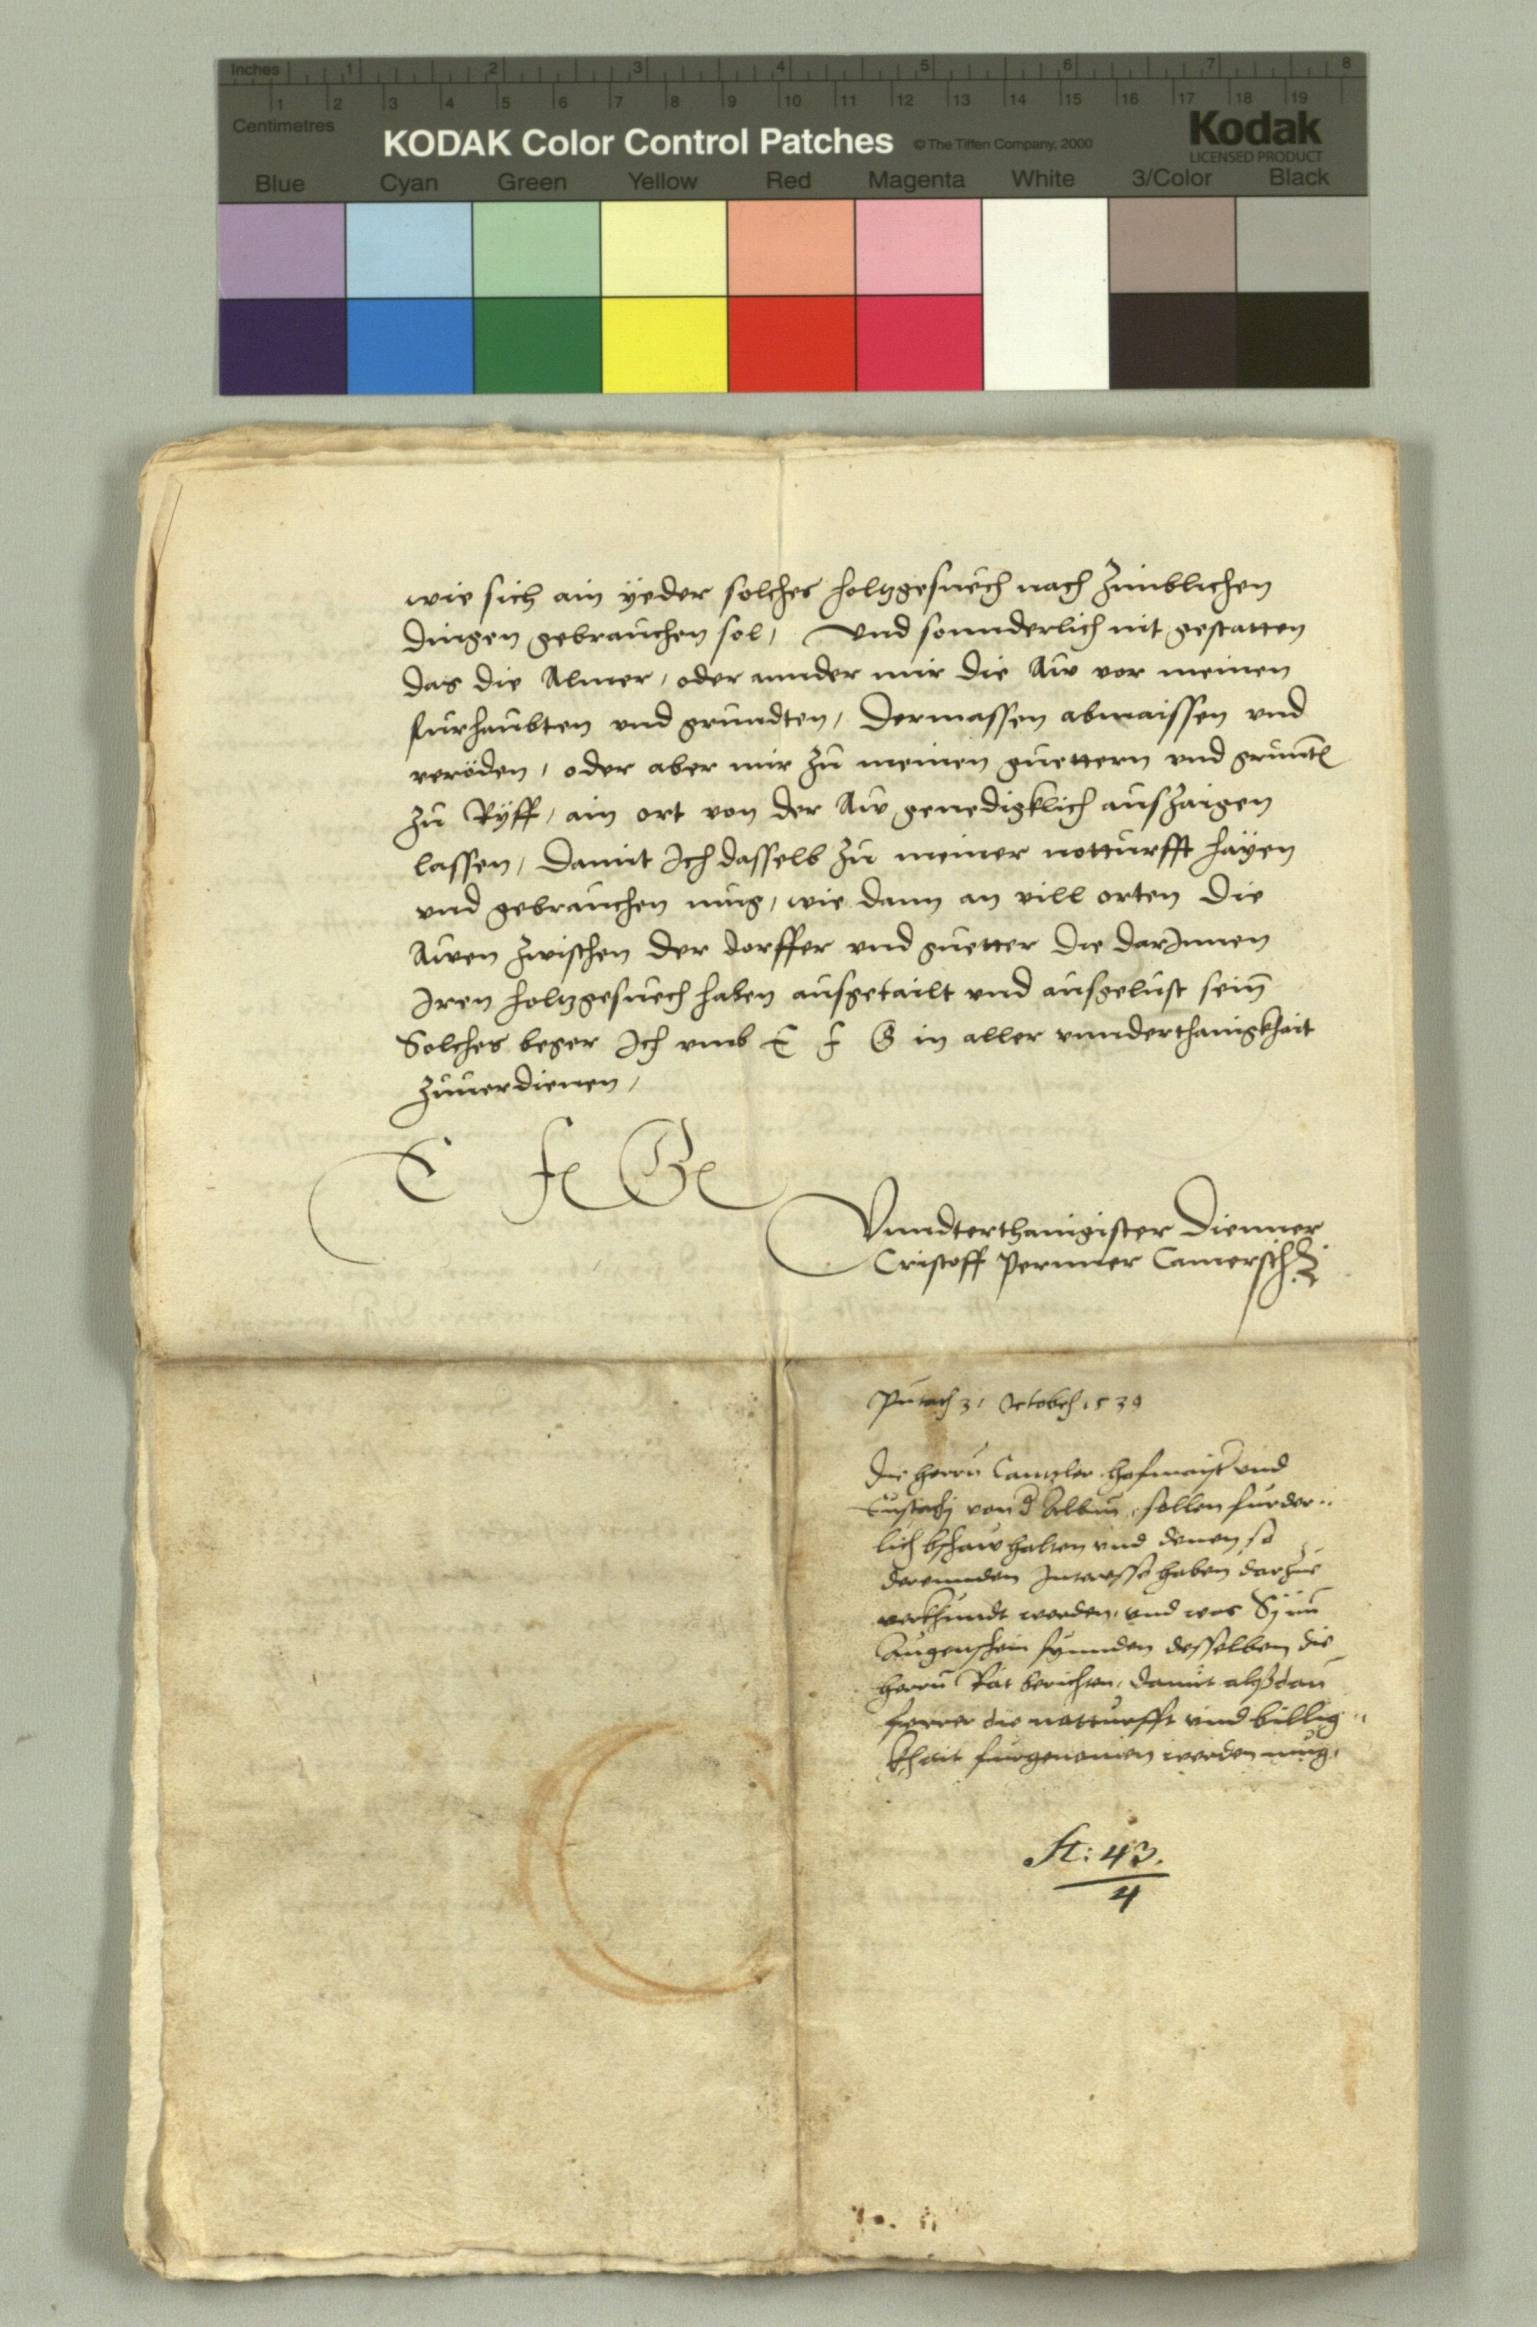 Inches 1 2 3 4 5 6 7 8
1 2 3 4 5 6 7 8 9 10 11 12 13 14 15 16 17 18 19
Centimetres
KODAK Color Control Patches © The Tiffen Company, 2000
Kodak
LICENSED PRODUCT
Blue Cyan Green Yellow Red Magenta White 3/Color Black
wie sich ain yeder solches holtzgesuech nach zimblichen
dingen gebrauchen sol, Vnd sonnderlich nit gestatten
das die Almer, oder annder mir die Aw vor meinen
furhaubten vnd grundten, dermassen abmaissen vnd
veröden, oder aber mir zu meinen guettern vnd grunt
zu Ryff, ain ort von der Aw genedigklich auszaigen
lassen, damit Ich dasselb zu meiner notturfft hayen
vnd gebrauchen mug, wie dann an vill orten die
Awen zwischen der dorffer vnd guetter die darInnen
Iren holtzgesuech haben ausgetailt vnd ausgelust sein
Solches beger Ich vmb E F G in aller vnnderthanigkhait
zuuerdienen,
E F G
Vnndterthanigister Dienner
Cristoff Pernner Camersch
3 Octob 1539
Die herrn Cantzler hofmaist vnd
Eustachj von d Albm, sollen furder
lich bschaw halten vnd denen so
Interesse haben darzue
verkhundt werden, vnd was Sy im
Augenschein fynnden desselben die
herrn Rät berichten, damit alsdan
ferrer die notturfft vnd billig
khait furgenomen werden mug.
St: 43.
4